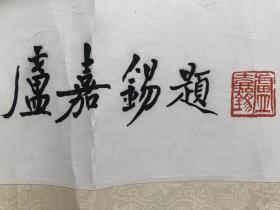 盧嘉錫題
盧嘉錫